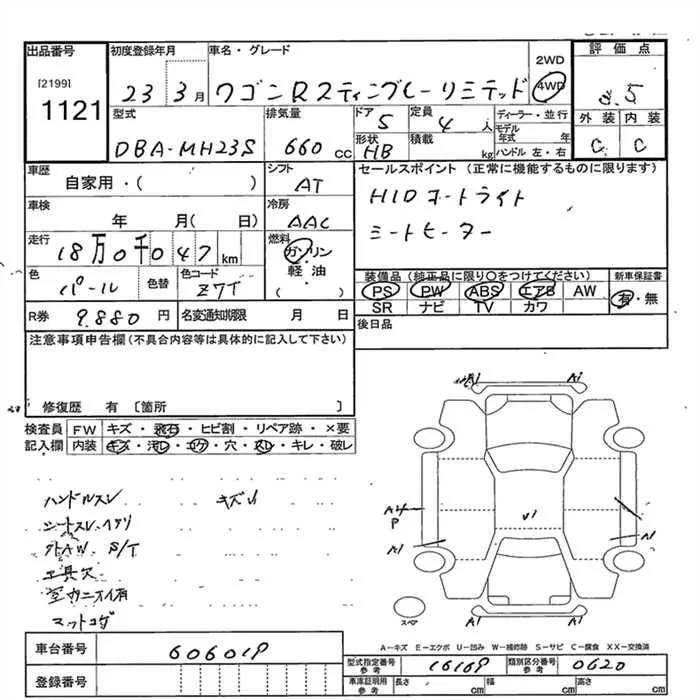 出品番号
[2199]
1121
初度登録年月
23 3月
車名・グレード
ワゴンRスティングレーリミテッド
2WD
4WD
評価点
3.5
外装 内装
C C
型式
DBA-MH23S
排気量
660 cc
ドア
5
形状
HB
定員
4 人
積載
kg
ディーラー・並行
モデル年式 年
ハンドル 左・右
車歴
自家用・( )
シフト
AT
車検
年 月( 日)
冷房
AAC
走行
18万0千047 km
燃料
ガソリン
軽油
( )
色
パール
色替
色コード
Z7T
R券
9.880 円
名変通知期限 月 日
セールスポイント(正常に機能するものに限ります)
HIDオートライト
シートヒーター
装備品(純正品に限り○をつけてください)
PS PW ABS エアB AW
SR ナビ TV カワ
新車保証書
有・無
後日品
注意事項申告欄(不具合内容等は具体的に記入して下さい)
修復歴 有〔箇所 〕
検査員 FW キズ・飛石・ヒビ割・リペア跡・×要
記入欄 内装 キズ・汚レ・コゲ・穴・スレ・キレ・破レ
ハンドルスレ キズ小
シートスレ・ヘタリ
社外AW S/T
工具欠
マットコゲ
A1
A1
A4
P
A1
A1
U1
スペア
A-キズ E-エクボ U-凹み W-補修跡 S-サビ C-腐食 XX-交換済
車台番号
606019
登録番号
型式指定番号 参考
16169
類別区分番号 参考
0620
車庫証明用 参考
長さ cm 幅 cm 高さ cm